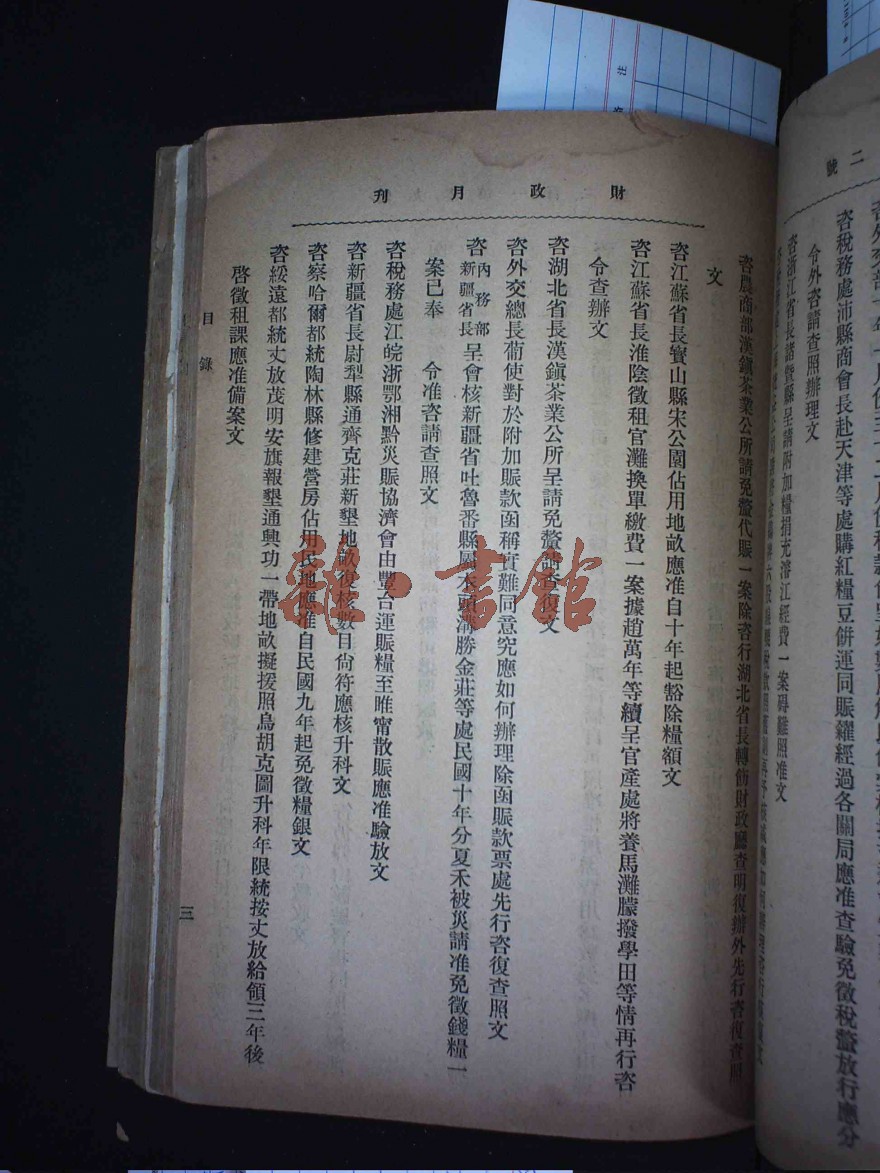 財政月刊
咨農商部漢鎭茶業公所請免釐代賑一案除咨行湖北省長轉飭財政廳查明復辦外先行咨復查照
文
咨江蘇省長寳山縣宋公園佔用地畝應准自十年起豁除糧額文
咨江蘇省長淮陰徵租官灘換單繳費一案據趙萬年等續呈官產處將養馬灘朦撥學田等情再行咨
令查辦文
咨湖北省長漢鎭茶業公所呈請免釐請查復文
咨外交總長葡使對於附加賑款函稱實難同意究應如何辦理除函賑款票處先行咨復查照文
咨內務部新疆省長呈會核新疆省吐魯番縣屬木頭溝勝金莊等處民國十年分夏禾被災請准免徵錢糧一
案已奉　令准咨請查照文
咨稅務處江皖浙鄂湘黔災賑協濟會由豐台運賑糧至睢甯散賑應准驗放文
咨新疆省長尉犁縣通齊克莊新墾地畝復核數目尙符應核升科文
咨察哈爾都統陶林縣修建營房佔用民地應准自民國九年起免徵糧銀文
咨綏遠都統丈放茂明安旗報墾通興功一帶地畝擬援照烏胡克圖升科年限統按丈放給領三年後
啓徵租課應准備案文
目錄
三
二號
咨稅務處沛縣商會長赴天津等處購紅糧豆併運同賑糴經過各關局應准查驗免徵稅釐放行應分
令外咨請查照辦理文
咨浙江省長諸暨縣呈請附加糧捐充濬江經費一案碍難照准文
雜·書館
注